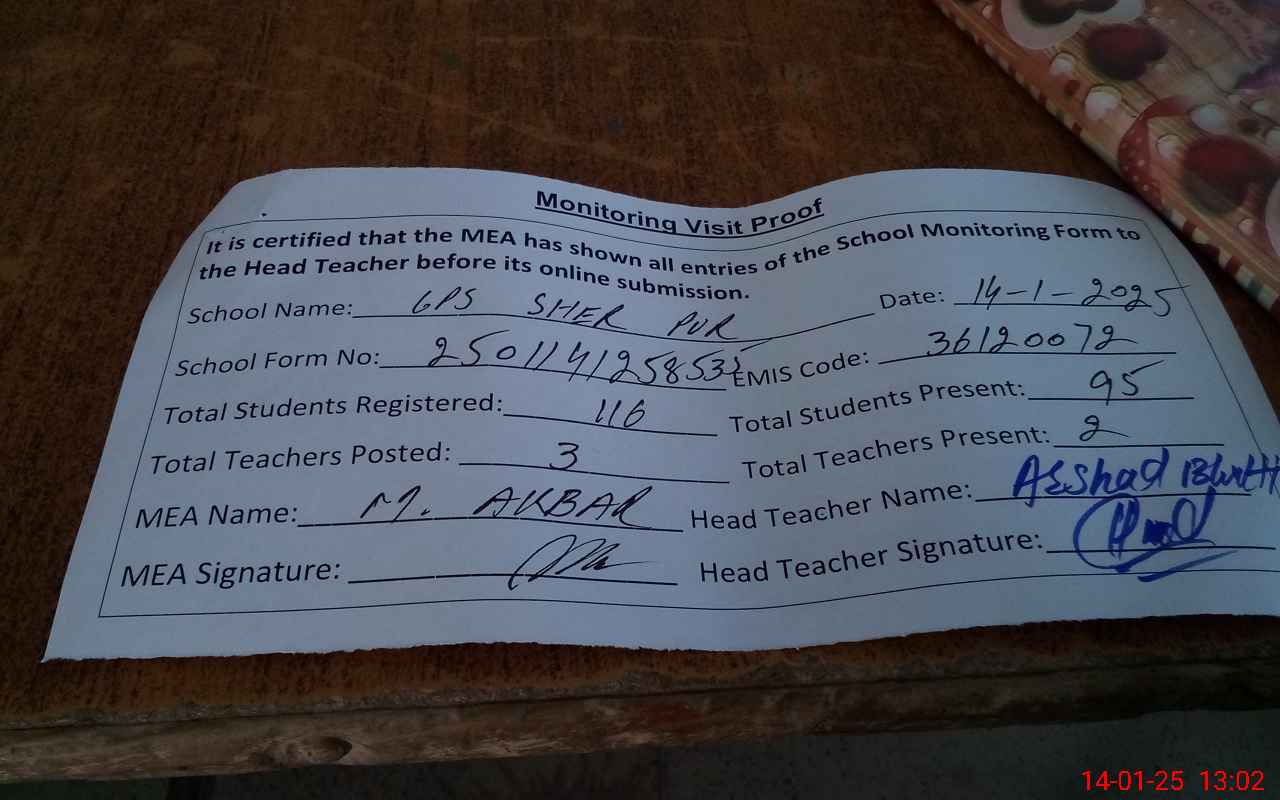 Monitoring Visit Proof
It is certified that the MEA has shown all entries of the School Monitoring Form to
the Head Teacher before its online submission.
School Name: GPS SHER PUR Date: 14-1-2025
School Form No: 2501141258535 EMIS Code: 36120072
Total Students Registered: 116 Total Students Present: 95
Total Teachers Posted: 3 Total Teachers Present: 2
MEA Name: M. AKBAR Head Teacher Name:
MEA Signature: Head Teacher Signature:
14-01-25 13:02